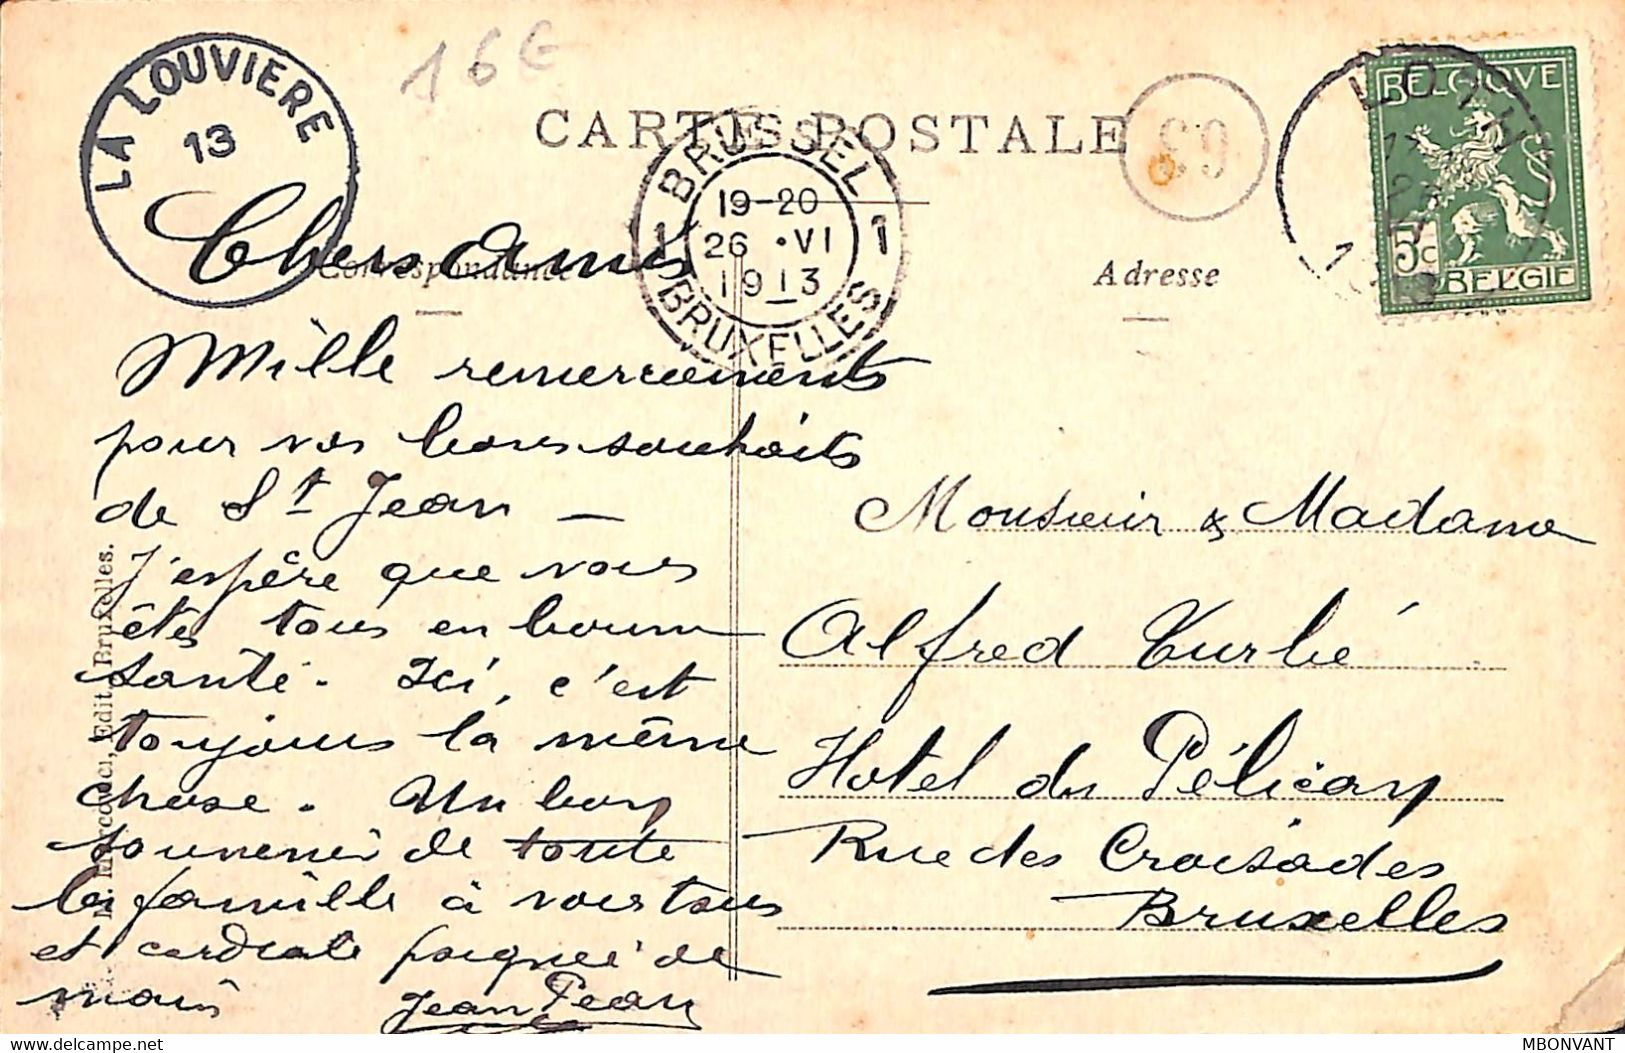 16€
LA LOUVIERE
13
CARTE POSTALE
BRUSSEL
19-20
26 ·VI
1913
1 1
BRUXELLES
63
BELGIQUE
5c
BELGIE
Correspondance
Adresse
Chers Amis
Mille remerciements
pour vos bons souhaits
de St Jean —
J'espère que vous
êtes tous en bonne
santé. Ici, c'est
toujours la même
chose. Un bon
souvenir de toute
la famille à vous tous
et cordiale poignée de
main
Jean
Monsieur & Madame
Alfred Turbé
Hotel du Pélican
Rue des Croisades
Bruxelles
Marcovici, Edit. Bruxelles.
MBONVANT
delcampe.net